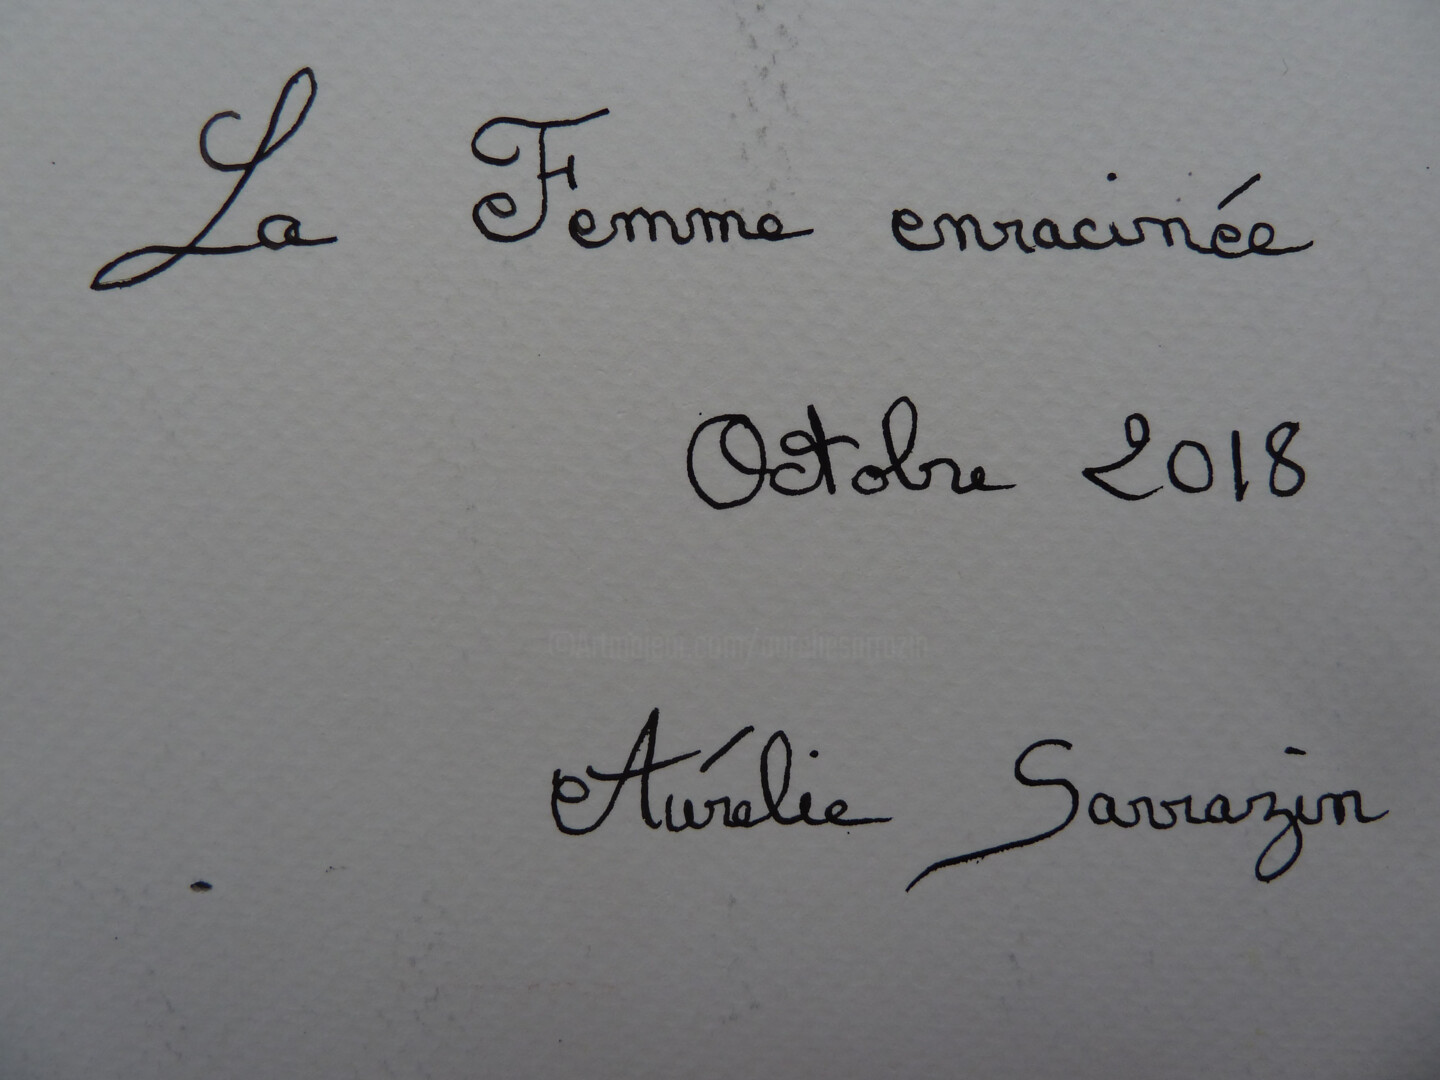 La Femme enracinée
Octobre 2018
©Artmajeur.com/aureliesarrazin
Aurélie Sarrazin